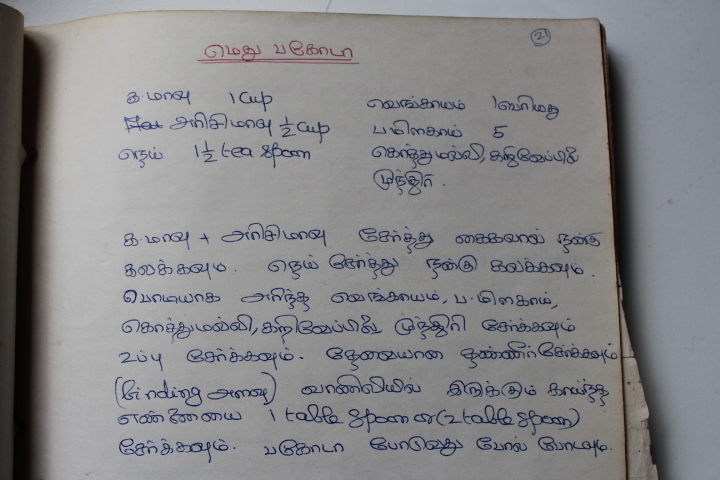 21
மெது பகோடா
க.மாவு 1 Cup
அரிசிமாவு ½ Cup
நெய் 1½ tea spoon
வெங்காயம் 1 பெரியது
ப.மிளகாய் 5
கொத்துமல்லி, கறிவேப்பிலை
முந்திரி.
க.மாவு + அரிசிமாவு சேர்த்து கைகளால் நன்கு
கலக்கவும். நெய் சேர்த்து நன்கு கலக்கவும்.
பொடியாக அரிந்த வெங்காயம், ப.மிளகாய்,
கொத்துமல்லி, கறிவேப்பிலை முந்திரி சேர்க்கவும்
உப்பு சேர்க்கவும். தேவையான தண்ணீர் சேர்க்கவும்
(binding அளவு) வாணலியில் இருக்கும் காய்ந்த
எண்ணையை 1 table spoon or (2 table spoon)
சேர்க்கவும். பகோடா போடுவது போல் போடவும்.